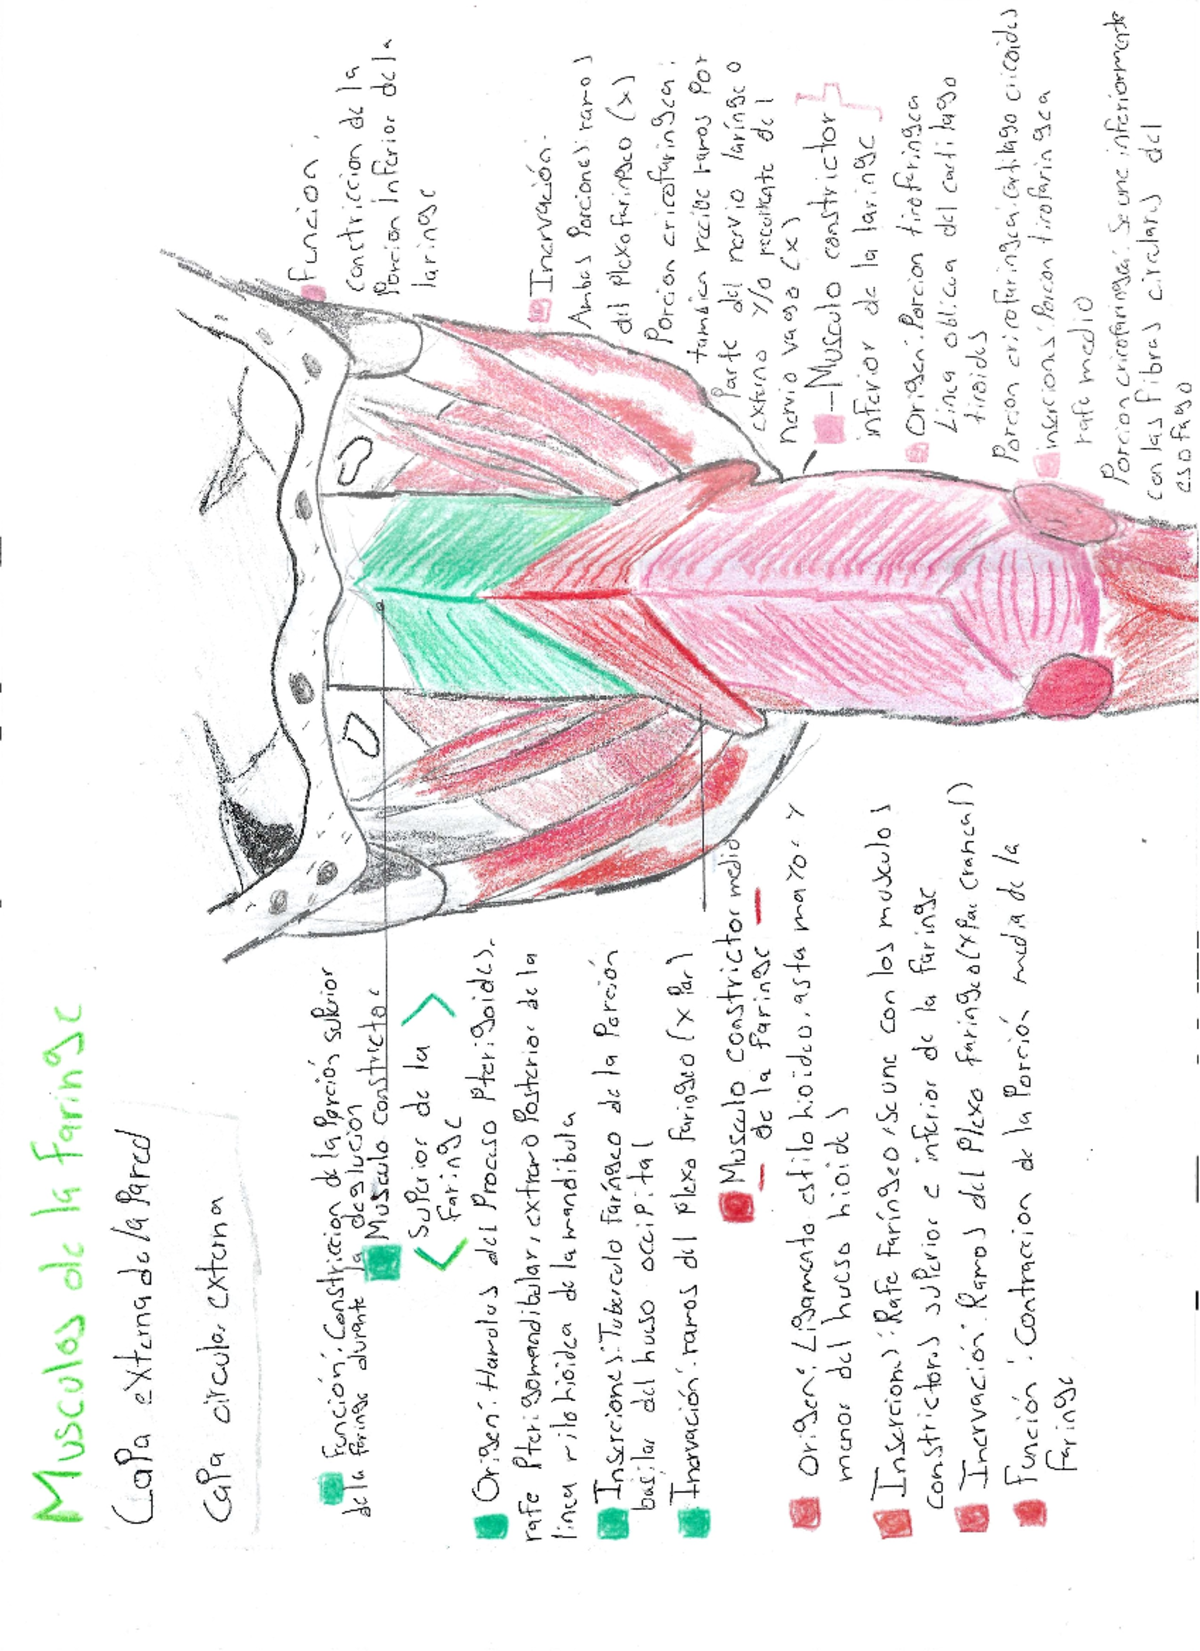 Musculos de la Faringe
Capa externa de la Pared
Capa circular externa
Función: Constriccion de la Porción superior
de la Faringe durante la deglución
Musculo constrictor
< Superior de la >
Faringe
Origen: Hamulus del Proceso Pterigoides.
rafe Pterigomandibular, extremo Posterior de la
linea milohioidea de la mandibula
Inserciones: Tuberculo faríngeo de la Porción
basilar del hueso occipital
Inervación: ramos del Plexo faringeo (x Par)
Musculo constrictor medio
— de la Faringe —
Origen: Ligamento estilo hioideo, asta mayor y
menor del hueso hioides
Insercions: Rafe Faríngeo, se une con los musculos
constrictores superior e inferior de la faringe
Inervación: Ramos del Plexo Faringeo (x Par craneal)
Función: Contraccion de la Porción media de la
faringe
Funcion.
Constriccion de la
Porcion Inferior de la
laringe
Inervación.
Ambas Porciones: ramos
del Plexo faringeo (x)
Porcion cricofaringea:
tambien recibe ramos Por
Parte del nervio laríngeo
externo y/o recurrente del
nervio vago (x)
-Musculo constrictor
inferior de la laringe
Origen: Porcion tirofaringea
Linea oblicua del cartilago
tiroides
Porcion cricofaringea: cartilago cricoides
inscercions: Porcion tirofaringea
rafe medio
Porcion cricofaringea: Se une inferiormente
con las fibras circulares del
esofago